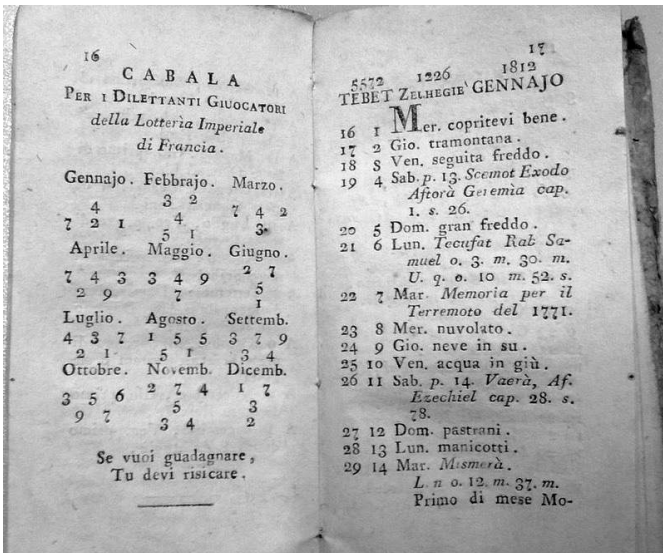 16
CABALA
PER I DILETTANTI GIUOCATORI
della Lotteria Imperiale
di Francia.
Gennajo. Febbrajo. Marzo.
4 3 2 7 4 2
7 2 1 4 3
5 1
Aprile. Maggio. Giugno.
7 4 3 3 4 9 2 7
2 9 7 5
1
Luglio. Agosto. Settemb.
4 3 7 1 5 5 3 7 9
2 1 5 1 3 4
Ottobre. Novemb. Dicemb.
3 5 6 2 7 4 1 7
9 7 5 3
3 4 2
Se vuoi guadagnare,
Tu devi risicare.
17
5572 1226 1812
TEBET ZELHEGIE' GENNAJO
16 1 Mer. copritevi bene.
17 2 Gio. tramontana.
18 3 Ven. seguita freddo.
19 4 Sab. p. 13. Scemot Exodo
Aftorà Geremìa cap.
1. s. 26.
20 5 Dom. gran freddo.
21 6 Lun. Tecufat Rab Sa-
muel o. 3. m. 30. m.
U. q. o. 10 m. 52. s.
22 7 Mar. Memoria per il
Terremoto del 1771.
23 8 Mer. nuvolato.
24 9 Gio. neve in su.
25 10 Ven. acqua in giù.
26 11 Sab. p. 14. Vaerà, Af.
Ezechiel cap. 28. s.
78.
27 12 Dom. pastrani.
28 13 Lun. manicotti.
29 14 Mar. Mismerà.
L. n o. 12. m. 37. m.
Primo di mese Mo-